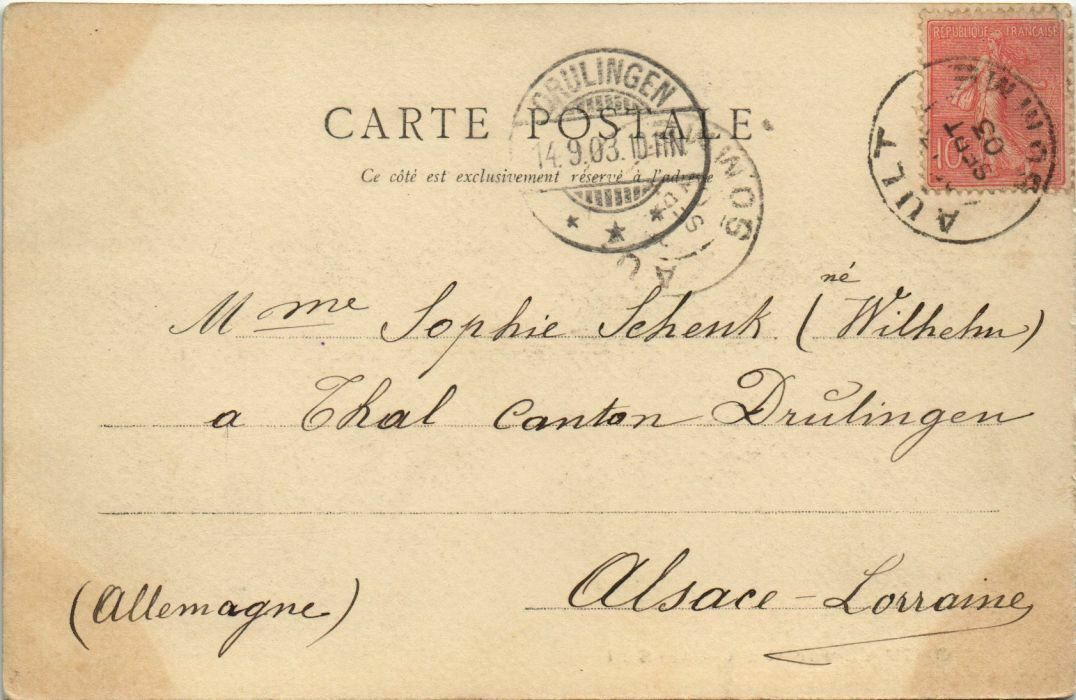 RÉPUBLIQUE FRANÇAISE
10
AULT
SOMME
SEPT
03
DRULINGEN
14.9.03. 10-11N.
SOMME
CARTE POSTALE
Ce côté est exclusivement réservé à l'adresse
né
Mme Sophie Schenk (Wilhelm)
a Thal canton Drŭlingen
Alsace-Lorraine
(Allemagne)